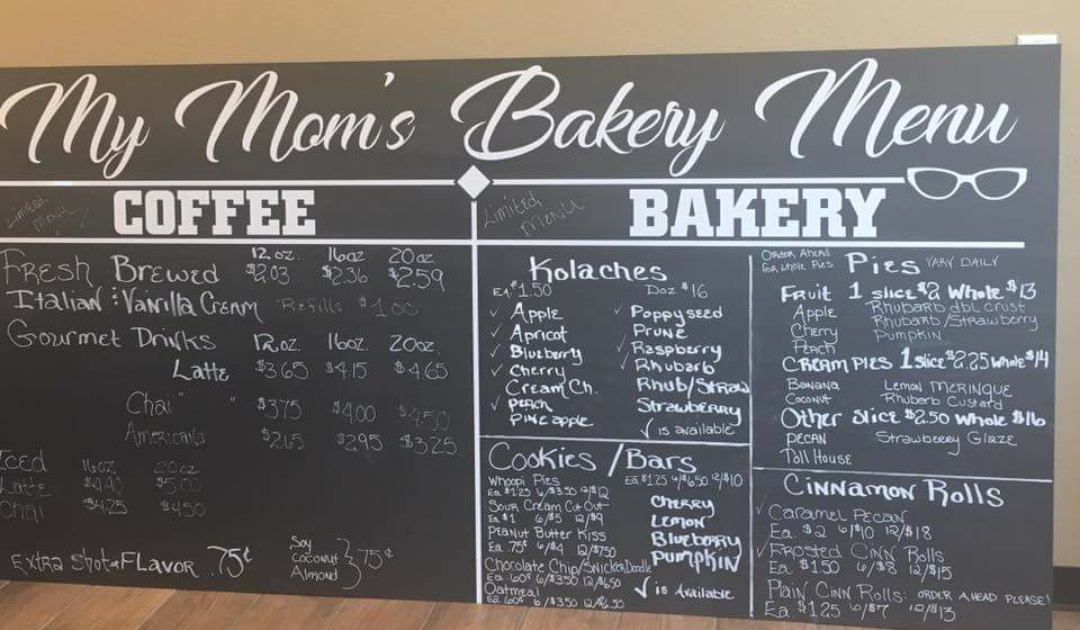 My Mom's Bakery Menu
Limited Menu
COFFEE
12 oz. 16oz 20oz
Fresh Brewed $2.03 $2.36 $2.59
Italian : Vanilla Cream Refills $1.00
Gourmet Drinks 12oz. 16oz. 20oz.
Latte $3.65 $4.15 $4.65
Chai " " $3.75 $4.00 $4.50
Americano $2.65 $2.95 $3.25
Iced 16oz 20oz
Latte $4.90 $5.00
Chai $4.25 $4.50
Extra shot or FLAVOR .75¢
Soy
Coconut } 75¢
Almond
Limited Menu
BAKERY
Kolaches
Ea $1.50 Doz $16
✓ Apple ✓ Poppyseed
✓ Apricot ✓ Prune
✓ Blueberry ✓ Raspberry
✓ Cherry ✓ Rhubarb
Cream Ch. Rhub/Straw
✓ Peach Strawberry
Pineapple ✓ is available
Cookies / Bars
Whoopi Pies
Ea $1.25 6/$3.50 12/$12
Sour Cream Cut Out
Ea. $1 6/$5 12/$9
Peanut Butter Kiss
Ea. 75¢ 6/$4 12/$7.50
Chocolate Chip/Snickerdoodle
Ea. 60¢ 6/$3.50 12/$6.50
Oatmeal
Ea. 60¢ 6/$3.50 12/$6.50
Ea $1.25 6/$6.50 12/$10
Cherry
Lemon
Blueberry
Pumpkin
✓ is Available
Order Ahead
for whole Pies
Pies VARY DAILY
Fruit 1 slice $2 Whole $13
Apple Rhubarb dbl crust
Cherry Rhubarb/Strawberry
Peach Pumpkin
CREAM PIES 1 slice $2.25 whole $14
Banana Lemon MERINGUE
Coconut Rhubarb Custard
Other Slice $2.50 Whole $16
Pecan Strawberry Glaze
Toll House
Cinnamon Rolls
✓ Caramel Pecan
Ea. $2 6/$10 12/$18
✓ Frosted Cinn Rolls
Ea. $1.50 6/$8 12/$15
Plain Cinn Rolls: ORDER AHEAD PLEASE!
Ea. $1.25 6/$7 12/$13